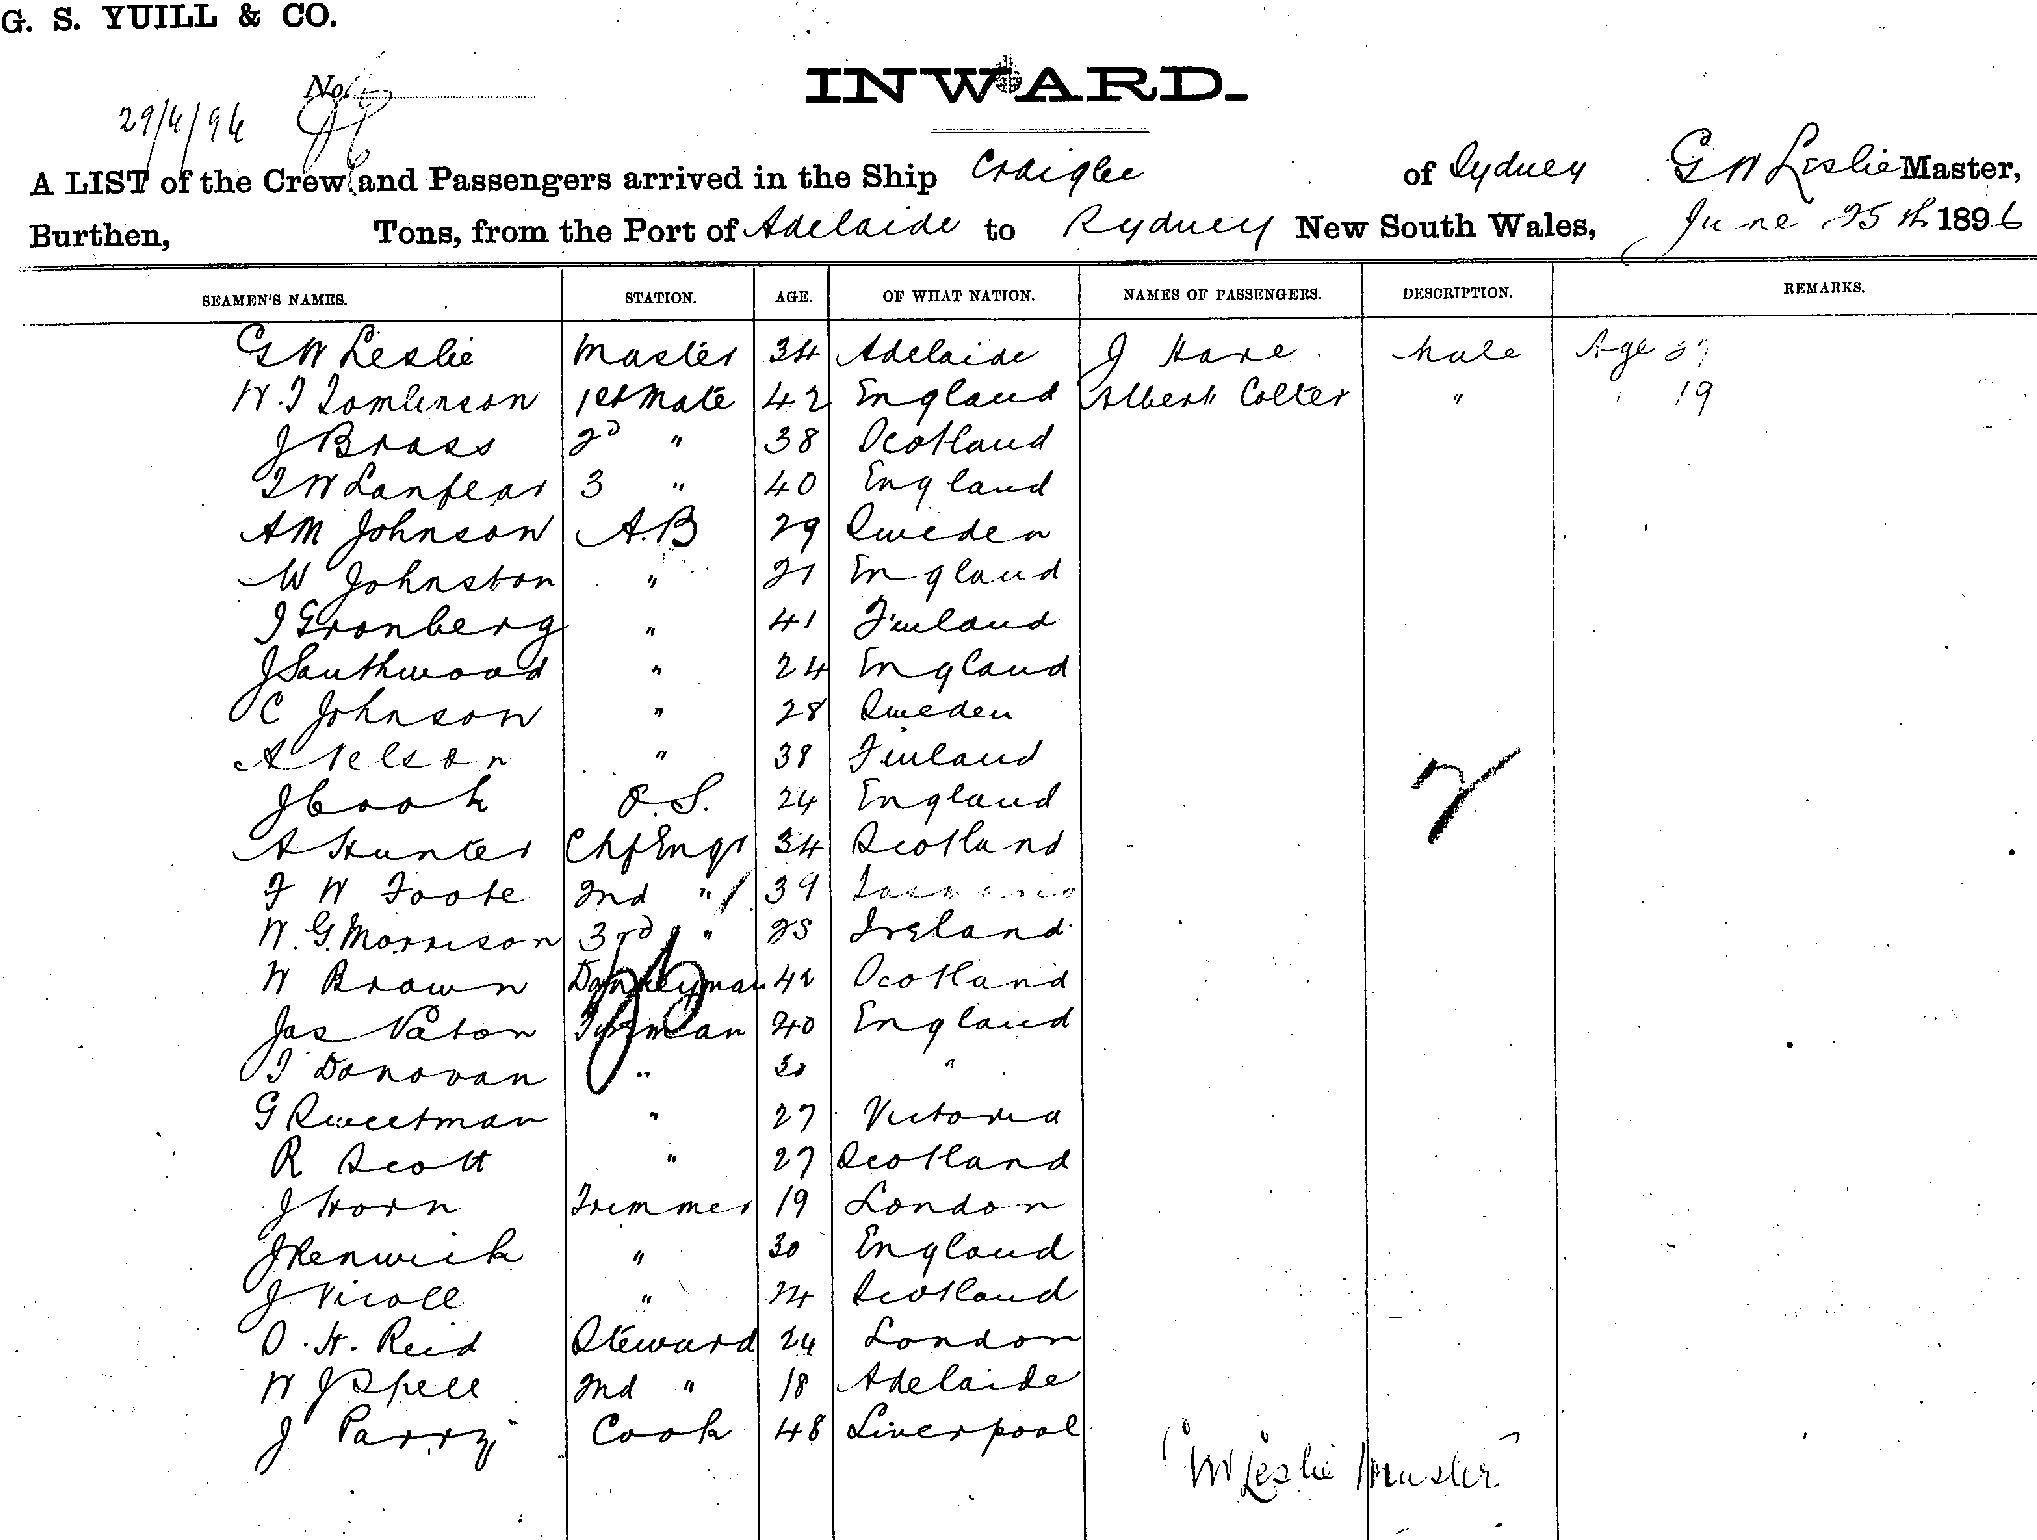 G. S. YUILL & CO.
INWARD.
No.
29/4/96
A LIST of the Crew and Passengers arrived in the Ship Craiglee of Sydney G W Leslie Master,
Burthen, Tons, from the Port of Adelaide to Sydney New South Wales, June 25th 1896
SEAMEN'S NAMES. STATION. AGE. OF WHAT NATION. NAMES OF PASSENGERS. DESCRIPTION. REMARKS.
G W Leslie Master 34 Adelaide J Hare Male Age
W. J Tomlinson 1st Mate 42 England Albert Colter " " 19
J Brass 2D " 38 Scotland
T W Lanfear 3 " 40 England
AM Johnson A.B 29 Sweden
W Johnston " 21 England
J Gronberg " 41 Finland
J Southwood " 24 England
C Johnson " 28 Sweden
A Nelson " 38 Finland
J Cook O.S. 24 England
A Hunter Chf Engr 34 Scotland
F W Foote 2nd " 39 Tasmania
W. G. Morrison 3rd " Ireland
W Brown Donkeyman 42 Scotland
Jas Paton Fireman 40 England
J Donovan " 30 "
G Sweetman " 27 Victoria
R Scott " 27 Scotland
J Horn Trimmer 19 London
J Renwick " 30 England
J Nicoll " 24 Scotland
D. H. Reid Steward 24 London
W J Spell 2nd " 18 Adelaide
J Parry Cook 48 Liverpool
W Leslie Master